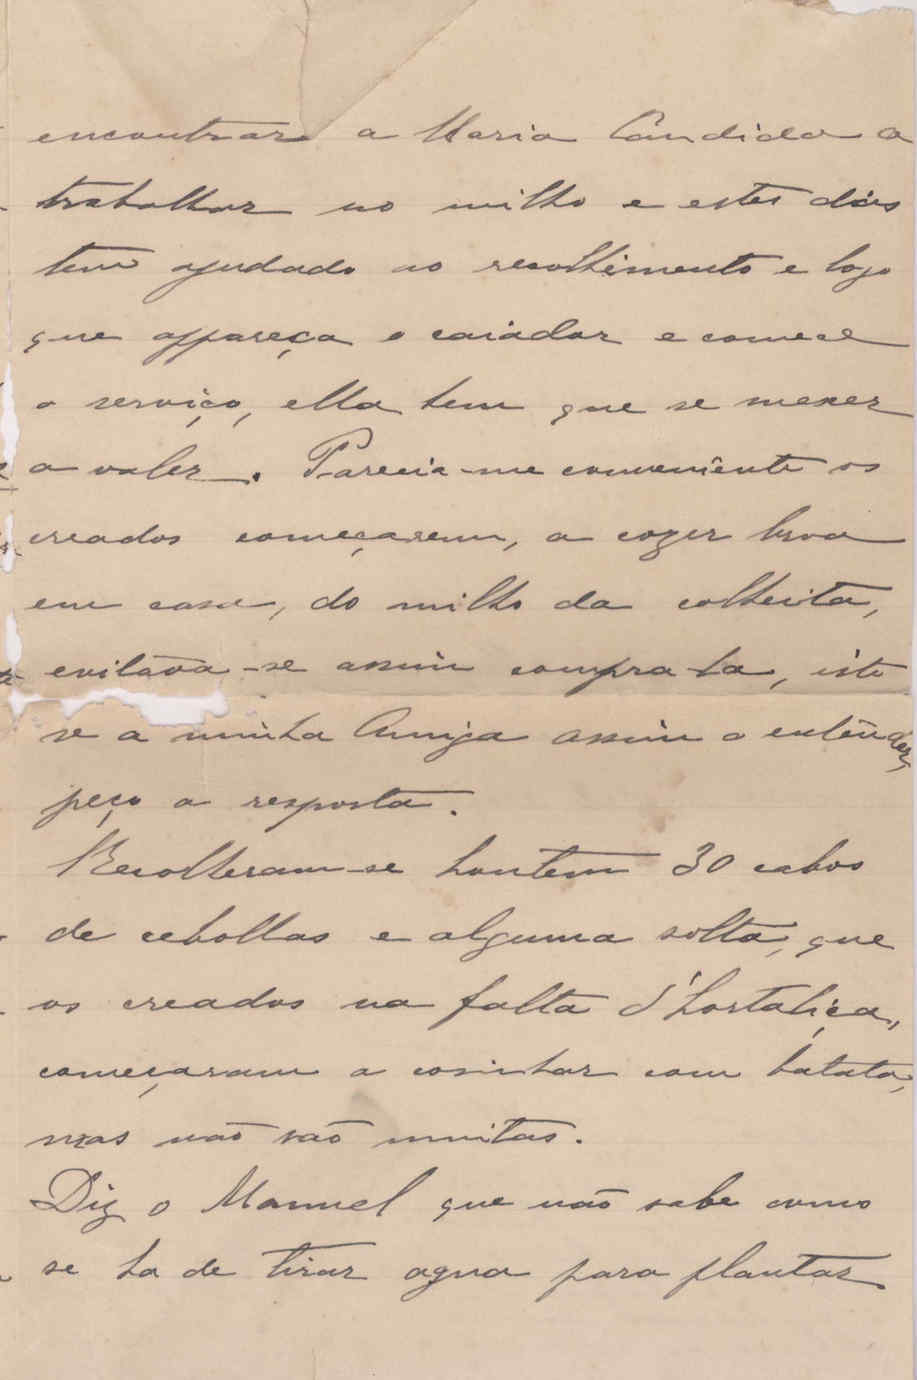 encontrar a Maria Candida a
trabalhar no milho e estes dias
tem ajudado ao recolhimento e logo
que appareça o caiador e comece
o serviço, ella tem que se mexer
a valer. Parecia-me conveniente os
creados começarem, a cozer broa
em casa, do milho da colheita,
evitava-se assim compra-la, isto
se a minha Amiga assim o entender,
peço a resposta.
Recolheram-se hontem 30 cabos
de cebollas e alguma solta, que
os creados na falta d'hortaliça,
começaram a cosinhar com batata,
mas não são muitas.
Diz o Manuel que não sabe como
se ha de tirar agua para plantar